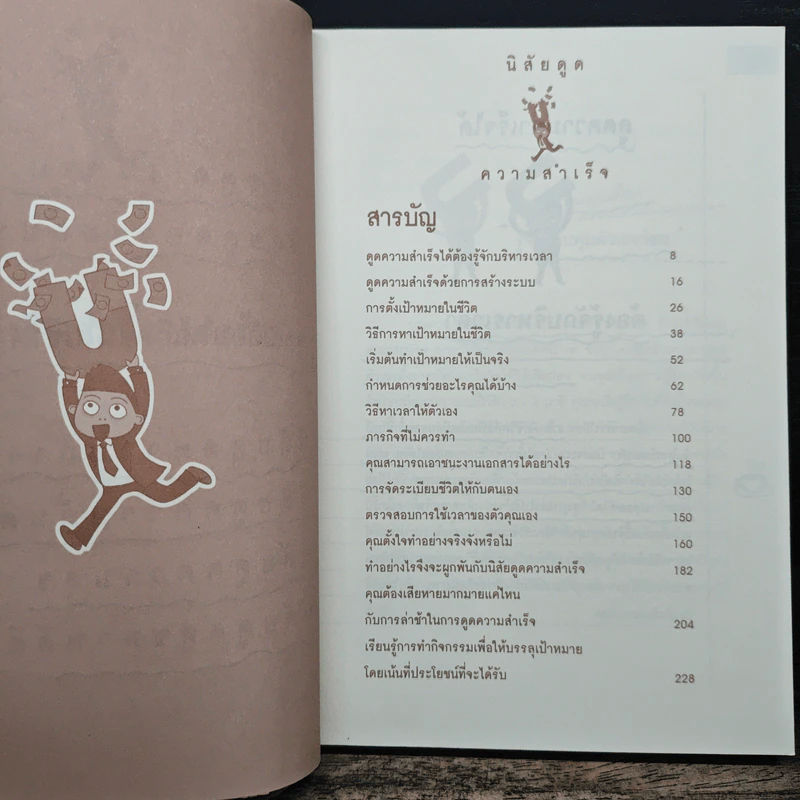 นิสัยดูด
ความสำเร็จ
สารบัญ
ดูดความสำเร็จได้ต้องรู้จักบริหารเวลา 8
ดูดความสำเร็จด้วยการสร้างระบบ 16
การตั้งเป้าหมายในชีวิต 26
วิธีการหาเป้าหมายในชีวิต 38
เริ่มต้นทำเป้าหมายให้เป็นจริง 52
กำหนดการช่วยอะไรคุณได้บ้าง 62
วิธีหาเวลาให้ตัวเอง 78
ภารกิจที่ไม่ควรทำ 100
คุณสามารถเอาชนะงานเอกสารได้อย่างไร 118
การจัดระเบียบชีวิตให้กับตนเอง 130
ตรวจสอบการใช้เวลาของตัวคุณเอง 150
คุณตั้งใจทำอย่างจริงจังหรือไม่ 160
ทำอย่างไรจึงจะผูกพันกับนิสัยดูดความสำเร็จ 182
คุณต้องเสียหายมากมายแค่ไหน
กับการล่าช้าในการดูดความสำเร็จ 204
เรียนรู้การทำกิจกรรมเพื่อให้บรรลุเป้าหมาย
โดยเน้นที่ประโยชน์ที่จะได้รับ 228